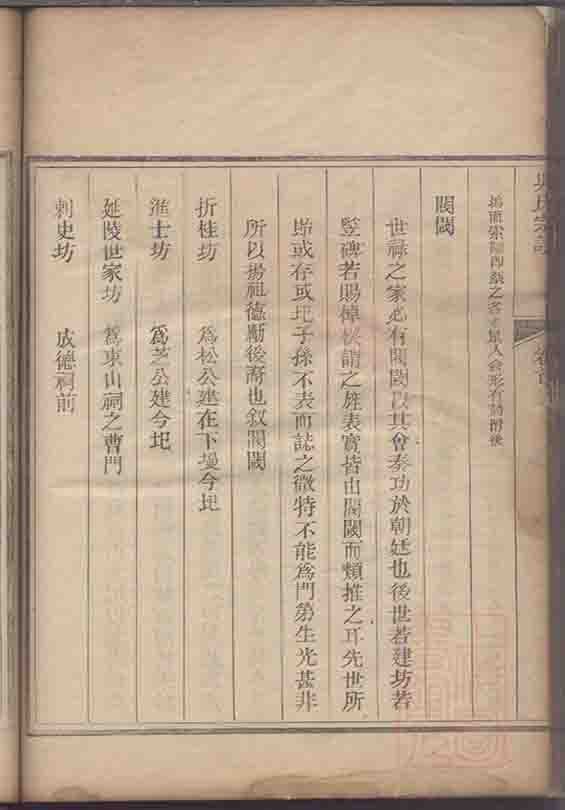 吳氏宗譜
卷首
閥閱
世祿之家必有閥閱以其曾奏功於朝廷也後世若建坊若
豎碑若賜棹楔謂之旌表實皆由閥閱而類推之耳先世所
貽或存或圮子孫不表而誌之微特不能爲門第生光甚非
所以揚祖德勵後裔也敘閥閱
折桂坊 爲松公建在下墁今圮
進士坊 爲芝公建今圮
延陵世家坊 爲東山祠之曹門
刺史坊 放德祠前